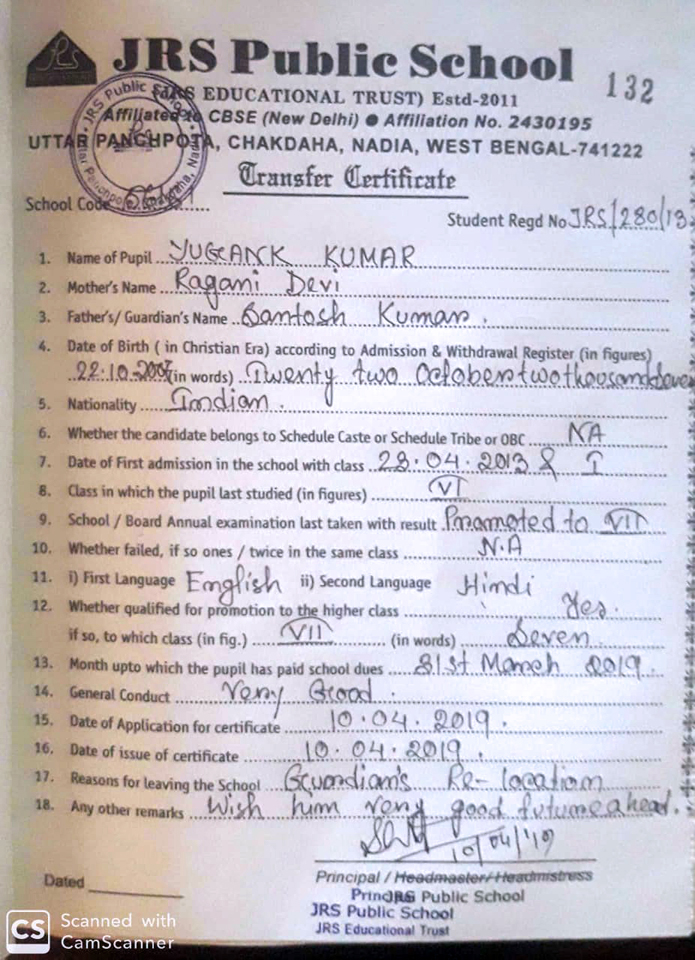 JRS Public School
132
(JRS EDUCATIONAL TRUST) Estd-2011
Affiliated to CBSE (New Delhi) ● Affiliation No. 2430195
UTTAR PANCHPOTA, CHAKDAHA, NADIA, WEST BENGAL-741222
Transfer Certificate
School Code
Student Regd No JRS/280/13
1. Name of Pupil YUGANK KUMAR
2. Mother's Name Ragani Devi
3. Father's/ Guardian's Name Santosh Kumar.
4. Date of Birth ( in Christian Era) according to Admission & Withdrawal Register (in figures)
22.10.2007 (in words) Twenty two October two thousand Seven
5. Nationality Indian.
6. Whether the candidate belongs to Schedule Caste or Schedule Tribe or OBC NA
7. Date of First admission in the school with class 23.04.2013 & I
8. Class in which the pupil last studied (in figures) VI
9. School / Board Annual examination last taken with result Promoted to VII
10. Whether failed, if so ones / twice in the same class N.A
11. i) First Language English ii) Second Language Hindi
12. Whether qualified for promotion to the higher class Yes.
if so, to which class (in fig.) VII (in words) Seven.
13. Month upto which the pupil has paid school dues 31st March 2019.
14. General Conduct Very Good.
15. Date of Application for certificate 10.04.2019.
16. Date of issue of certificate 10.04.2019.
17. Reasons for leaving the School Guardian's Re-location
18. Any other remarks Wish him very good future ahead.
10/04/19
Dated
Principal / Headmaster/ Headmistress
Principal
JRS Public School
JRS Public School
JRS Educational Trust
CS Scanned with
CamScanner